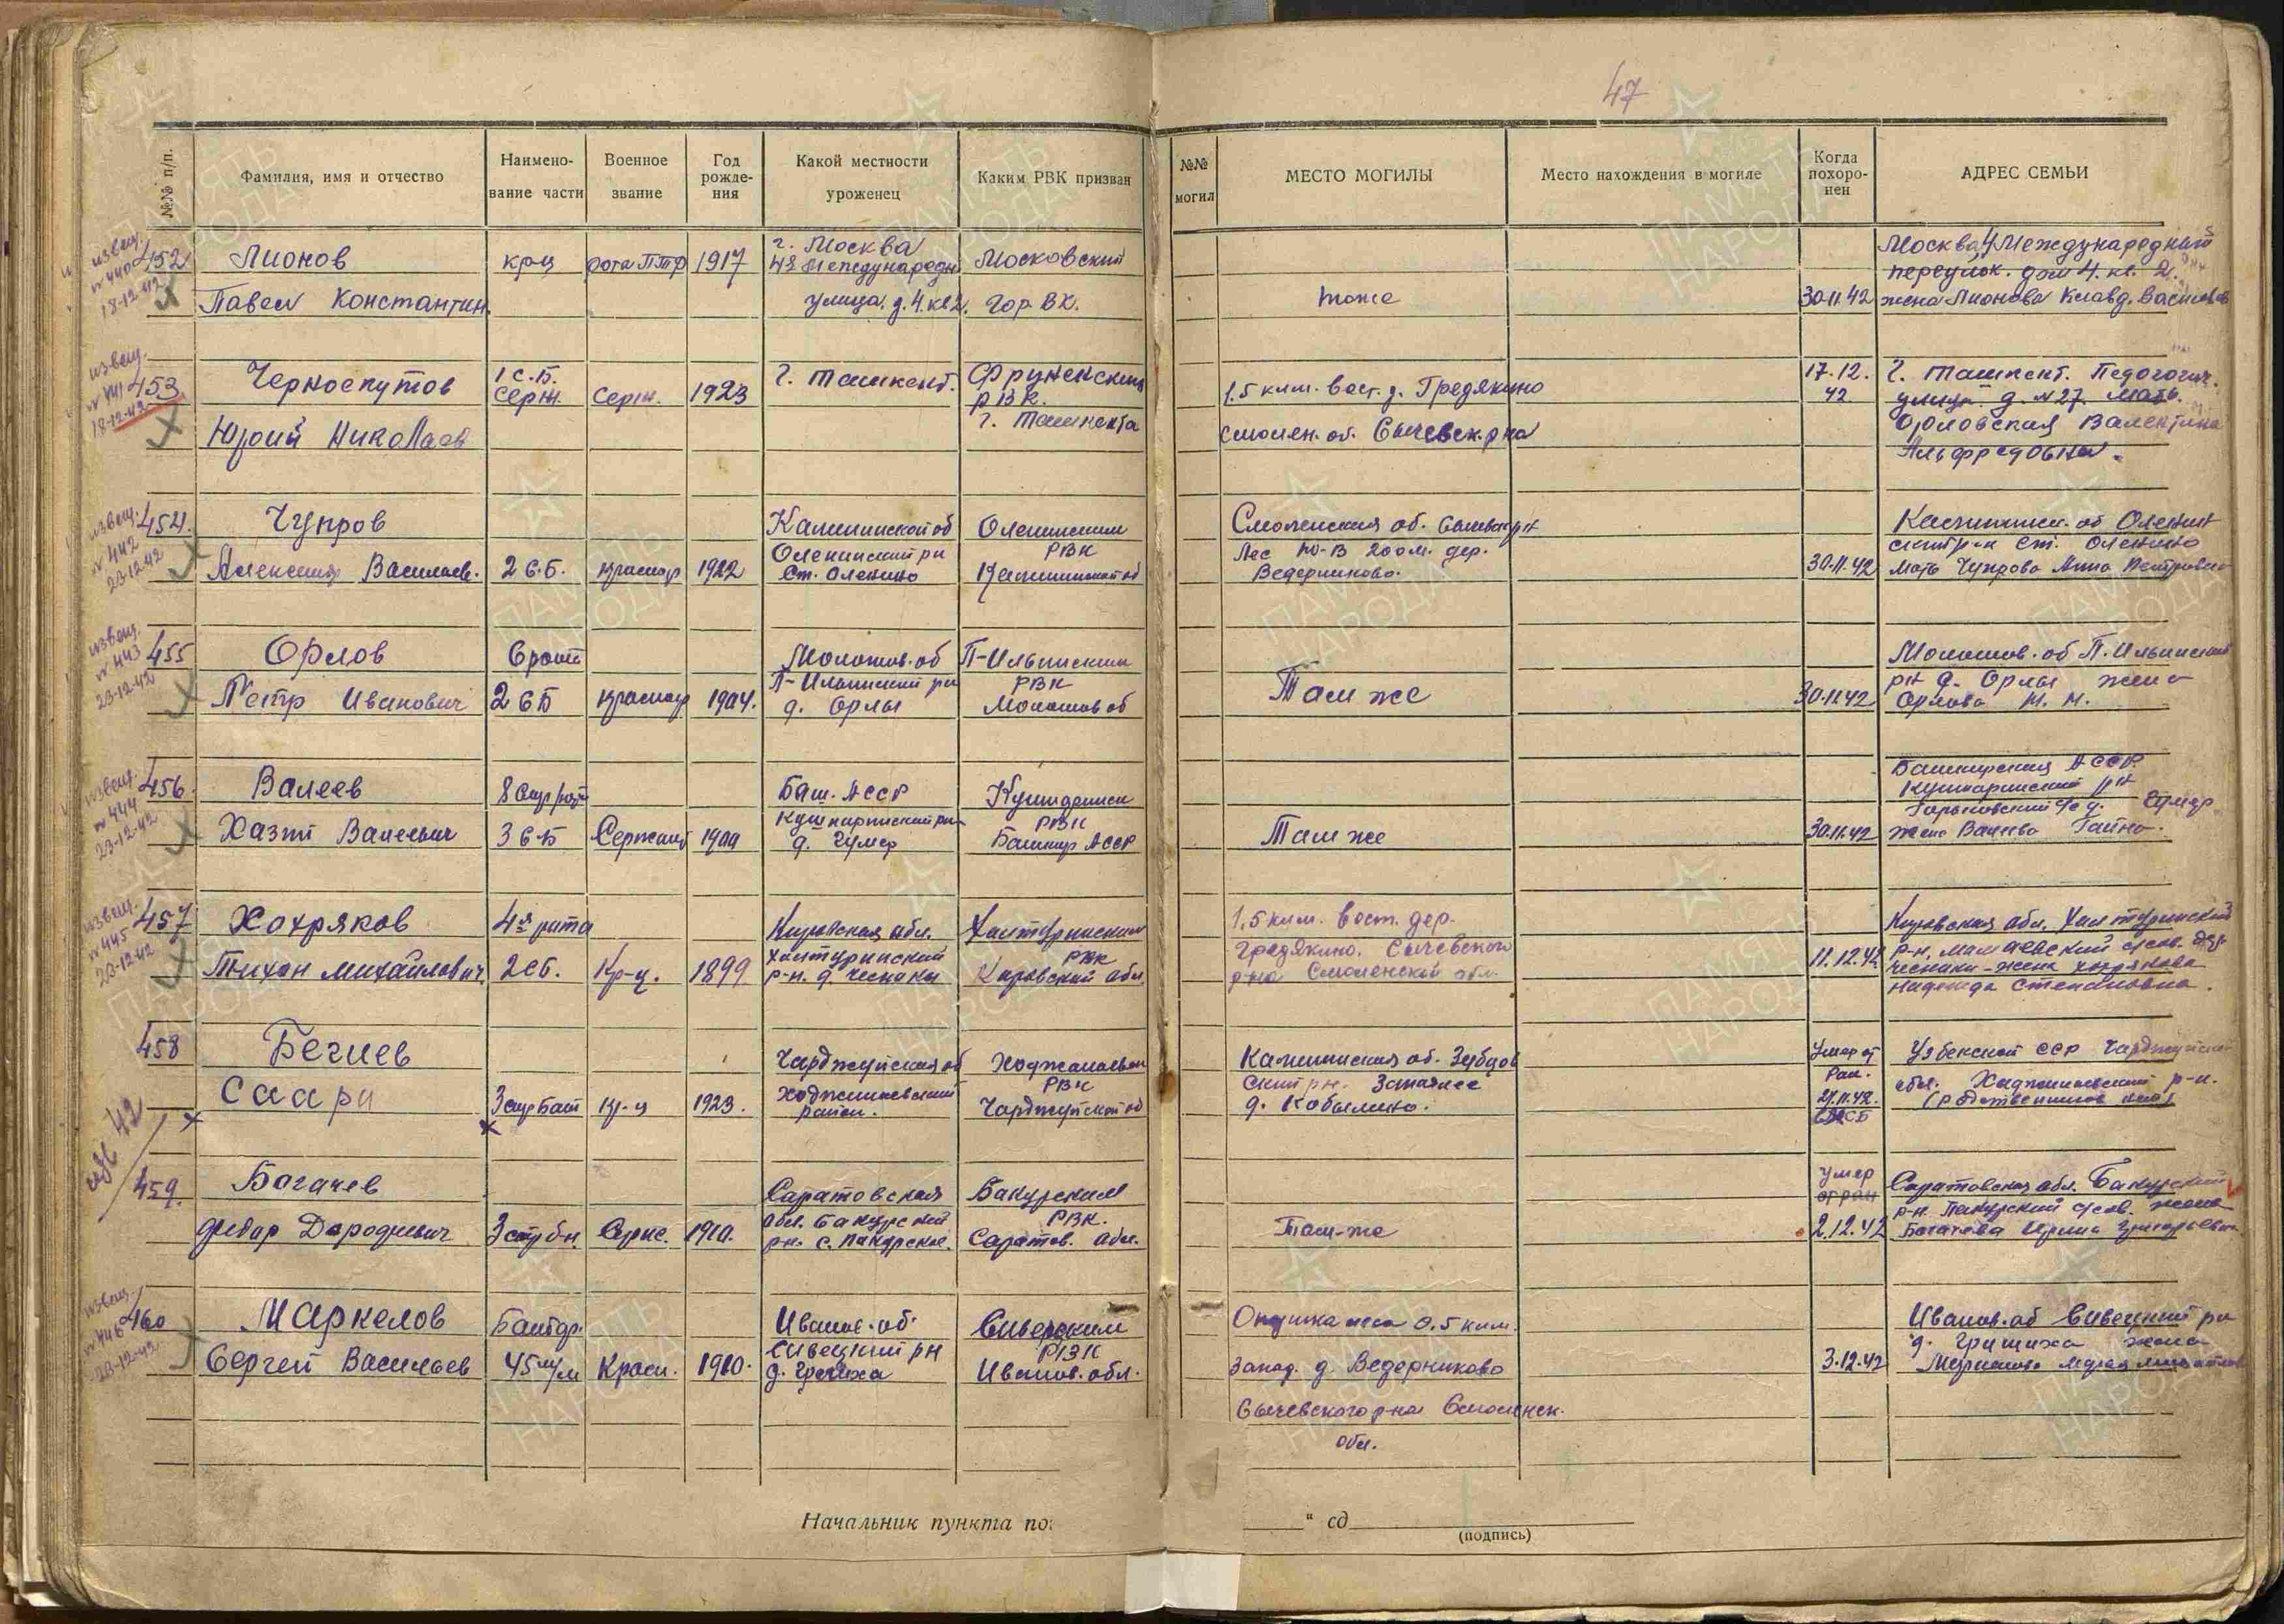 47
№№ п/п.
Фамилия, имя и отчество
Наимено-
вание части
Военное
звание
Год
рожде-
ния
Какой местности
уроженец
Каким РВК призван
№№
могил
МЕСТО МОГИЛЫ
Место нахождения в могиле
Когда
похоро-
нен
АДРЕС СЕМЬИ
извещ.
№ 440
18-12-42
452
Лионов
Павел Константин.
крц
рота ПТР
1917
г. Москва
4я Международн
улица. д. 4. кв 2.
Московский
гор. ВК.
тоже
30.11.42
Москва, 4 Международный
переулок. дом 4. кв. 2.
жена Лионова Клавд. Васильев
извещ.
№ 441
18-12-42
453
Черноспутов
Юрий Николаев
1 с.б.
серж.
серж.
1923
г. Ташкент.
Фрунзенским
РВК.
г. Ташкента
1.5 клм. вост. д. Гредякино
смолен. об. Сычевск. р на
17.12.
42
г. Ташкент. Педогогич.
улица д. № 27. мать
Орловская Валентина
Альфредовна.
извещ.
№ 442
23-12-42
454.
Чупров
Алексей Васильев.
2 С.Б.
красноар
1922
Калининской об
Оленинский рн
ст. Оленино
Оленинским
РВК
Калининской об
Смоленская об. Сычевск рн
Лес Ю-В 200 м. дер.
Ведерниково.
30.11.42
Калинин. об Оленин
ский р-н ст. Оленино
мать Чупрова Анна Петровна
извещ.
№ 443
23-12-42
455
Орлов
Петр Иванович
2 СБ
красноар
1904.
Молотов. об
П-Ильинский рн
д. Орлы
П-Ильинским
РВК
Молотов об
Там же
30.11.42
Молотов. об П. Ильинский
рн д. Орлы жена
Орлова М. М.
извещ.
№ 444
23-12-42
456
Валеев
Хазит Валеевич
3 СБ
Сержант
Баш. АССР
д. Чумер
РВК
Башкир АССР
Там же
30.11.42
Башкирская АССР
жена Валеева
извещ.
№ 445
23-12-42
457
Хохряков
Тихон Михайлович.
4я рота
2 сб.
Кр-ц.
1899
Кировская обл.
Халтуринский
р-н. д. Чеснаки
Халтуринским
РВК
Кировской обл.
1,5 клм. вост. дер.
Гредякино. Сычевского
р на Смоленской обл.
11.12.42
Кировская обл. Халтуринский
жена Хохрякова
Надежда Степановна.
458
Бегиев
Саари
3 стр Бат
кр-ц
1923.
Чарджуйская об
Ходжамбасский
район.
РВК
Чарджуйской об
Калининская об. Зубцов
ский рн. Западнее
д. Кобылино.
Умер от
Ран.
Узбекской ССР Чарджуйской
обл. р-н.
(родственников нет)
изв 42
459.
Богачев
3 стр бн.
Серж.
1910.
Саратовская
обл. Бакурский
рн.
Бакурским
РВК.
Саратов. обл.
Там-же
Умер
от ран
2.12.42
Саратовская обл. Бакурский
жена
Богачева Ирина Григорьевна
извещ.
№ 446
23-12-42
460
Маркелов
Сергей Васильев
45 м/м
Красн.
1910.
Иванов. об.
РВК
Иванов. обл.
Опушка леса 0.5 клм.
запад. д. Ведерниково
Сычевского р-на Смоленск.
обл.
3.12.42
Иванов. об
жена
Начальник пункта по:
" сд
(подпись)
ПАМЯТЬ
НАРОДА